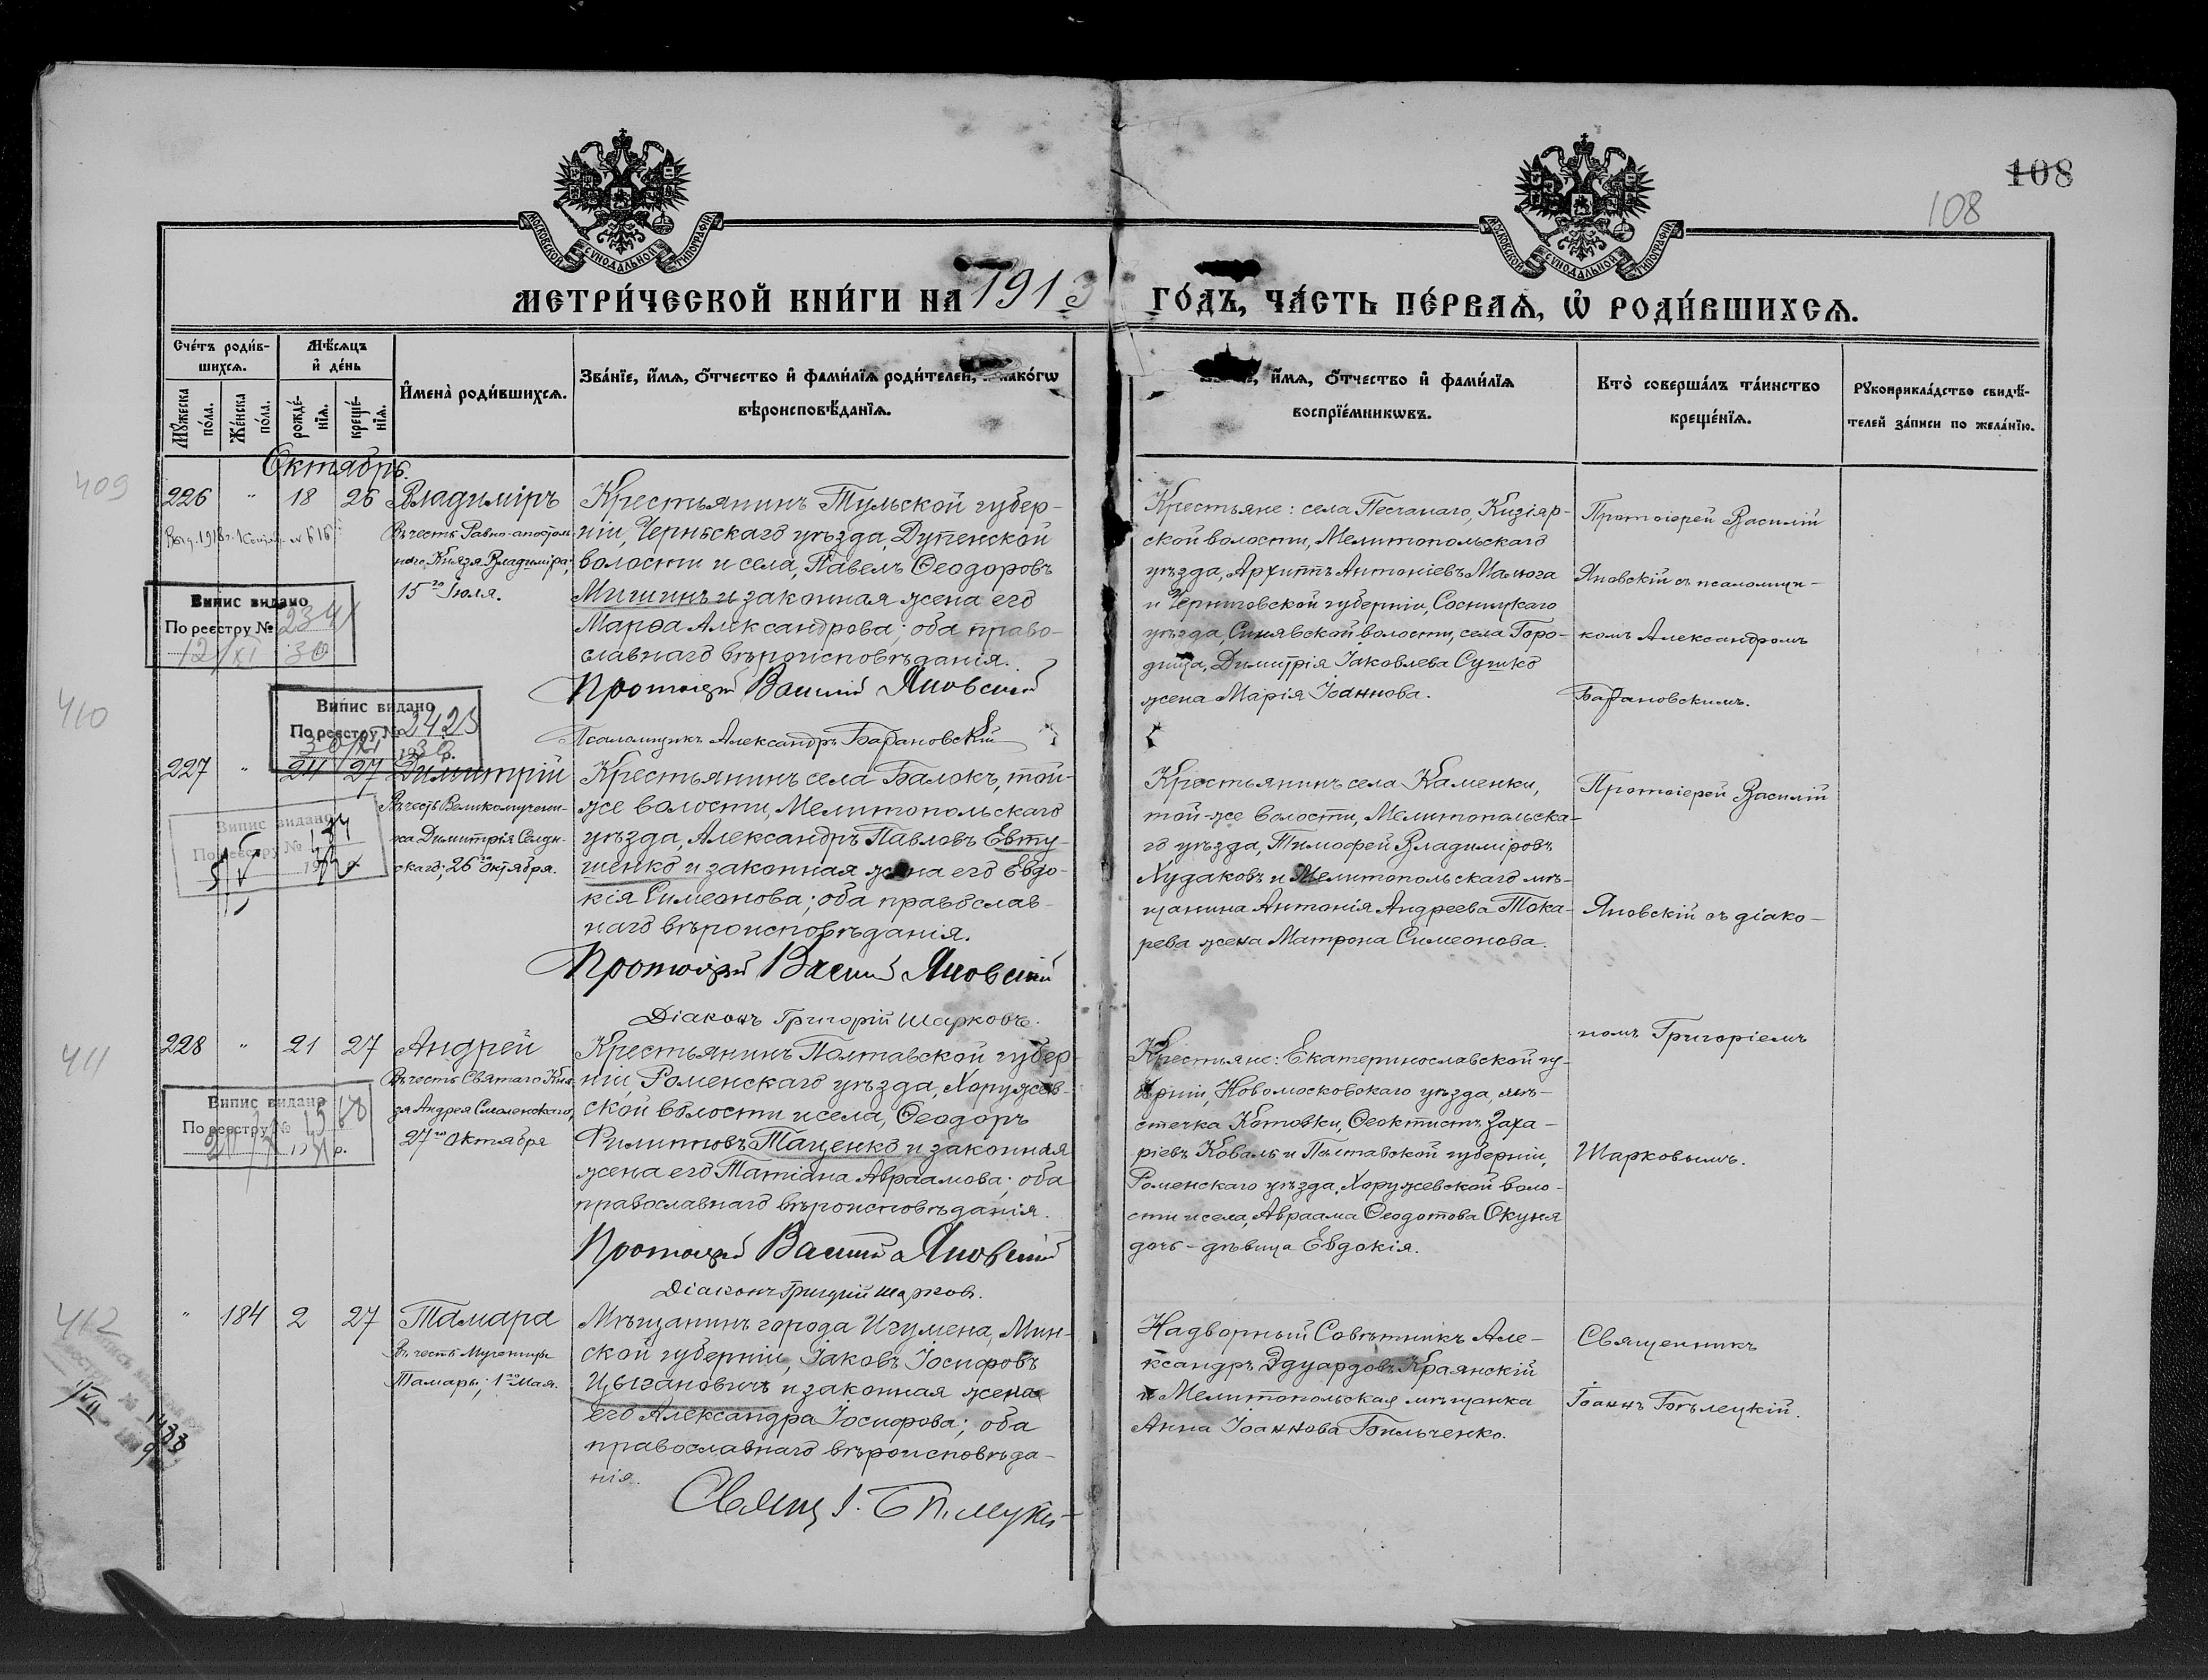 108
108
МОСКОВСКОЙ СѴНОДАЛЬНОЙ ТИПОГРАФІИ
МОСКОВСКОЙ СѴНОДАЛЬНОЙ ТИПОГРАФІИ
МЕТРИ́ЧЕСКОЙ КНИ́ГИ НА 1913 ГО́ДЪ, ЧА́СТЬ ПЕ́РВАѦ, Ѡ҆ РОДИ́ВШИХСѦ.
Сче́тъ роди́в-
шихсѧ.
Мꙋ́жеска по́ла.
Же́нска по́ла.
Мѣ́сѧцъ
и҆ де́нь
рожде́-
нїѧ.
креще́-
нїѧ.
И҆мена̀ роди́вшихсѧ.
Зва́нїе, и҆́мѧ, ѻ҆́тчество и҆ фами́лїѧ роди́телей, и҆ како́гѡ
вѣроисповѣ́данїѧ.
и҆́мѧ, ѻ҆́тчество и҆ фами́лїѧ
воспрїе́мникѡвъ.
Кто̀ соверша́лъ та́инство
креще́нїѧ.
Рꙋкоприкла́дство свидѣ́-
телей за́писи по жела́нїю.
Октябрь.
409
226 " 18 26
Владиміръ
Въ честь Равно-апостоль
наго Князя Владиміра;
15го Іюля.
Випис видано
По реєстру № 2341
12/XI 30
Крестьянинъ Тульской губер-
ніи, Чернскаго уѣзда, Дупенской
волости и села, Павелъ Ѳеодоровъ
Мишинъ и законная жена его
Марѳа Александрова; оба право-
славнаго вѣроисповѣданія.
Протоіерей Василій Яновскій
Псаломщикъ Александръ Барановскій
Крестьяне: села Песчанаго, Кизіяр-
ской волости, Мелитопольскаго
уѣзда, Архиппъ Антоніевъ Малюга
и Черниговской губерніи, Сосницкаго
уѣзда, Синявской волости, села Горо-
дища, Димитрія Іаковлева Сушко
жена Марія Іоаннова.
Протоіерей Василій
Яновскій съ псаломщи-
комъ Александромъ
Барановскимъ.
410
Випис видано
По реєстру № 2423
227 " 24 27
Димитрій
Въ честь Великомучени-
ка Димитрія Солун-
скаго; 26го октября.
Випис видано
По реєстру №
Крестьянинъ села Балокъ, той-
же волости, Мелитопольскаго
уѣзда, Александръ Павловъ Евту-
шенко и законная жена его Евдо-
кія Симеонова; оба православ-
наго вѣроисповѣданія.
Протоіерей Василій Яновскій
Діаконъ Григорій Шарковъ.
Крестьянинъ села Каменки,
той-же волости, Мелитопольска-
го уѣзда, Тимофей Владиміровъ
Худаковъ и Мелитопольскаго мѣ-
щанина Антонія Андреева Тока-
рева жена Матрона Симеонова.
Протоіерей Василій
Яновскій съ діако-
номъ Григоріемъ
Шарковымъ.
411
228 " 21 27
Андрей
Въ честь Святаго Кня
зя Андрея Смоленскаго,
27го Октября
Випис видано
По реєстру №
Крестьянинъ Полтавской губер-
ніи Роменскаго уѣзда, Хоружев-
ской волости и села, Ѳеодоръ
Филипповъ Таценко и законная
жена его Татіана Авраамова; оба
православнаго вѣроисповѣданія.
Протоіерей Василій Яновскій
Діаконъ Григорій Шарковъ.
Крестьяне: Екатеринославской гу-
берніи, Новомосковскаго уѣзда, мѣ-
стечка Котовки, Ѳеоктистъ Заха-
ріевъ Коваль и Полтавской губерніи,
Роменскаго уѣзда, Хоружевской воло-
сти и села, Авраама Ѳеодотова Окуня
дочь-дѣвица Евдокія.
412
" 184 2 27
Тамара
Въ честь Мученицы
Тамары; 1го Мая.
Мѣщанинъ города Игумена, Мин-
ской губерніи, Іаковъ Іосифовъ
Цыгановичъ и законная жена
его Александра Іосифова; оба
православнаго вѣроисповѣда-
нія.
Надворный Совѣтникъ Але-
ксандръ Эдуардовъ Краянскій
и Мелитопольская мѣщанка
Анна Іоаннова Бильченко.
Священникъ
Іоаннъ Бѣлецкій.